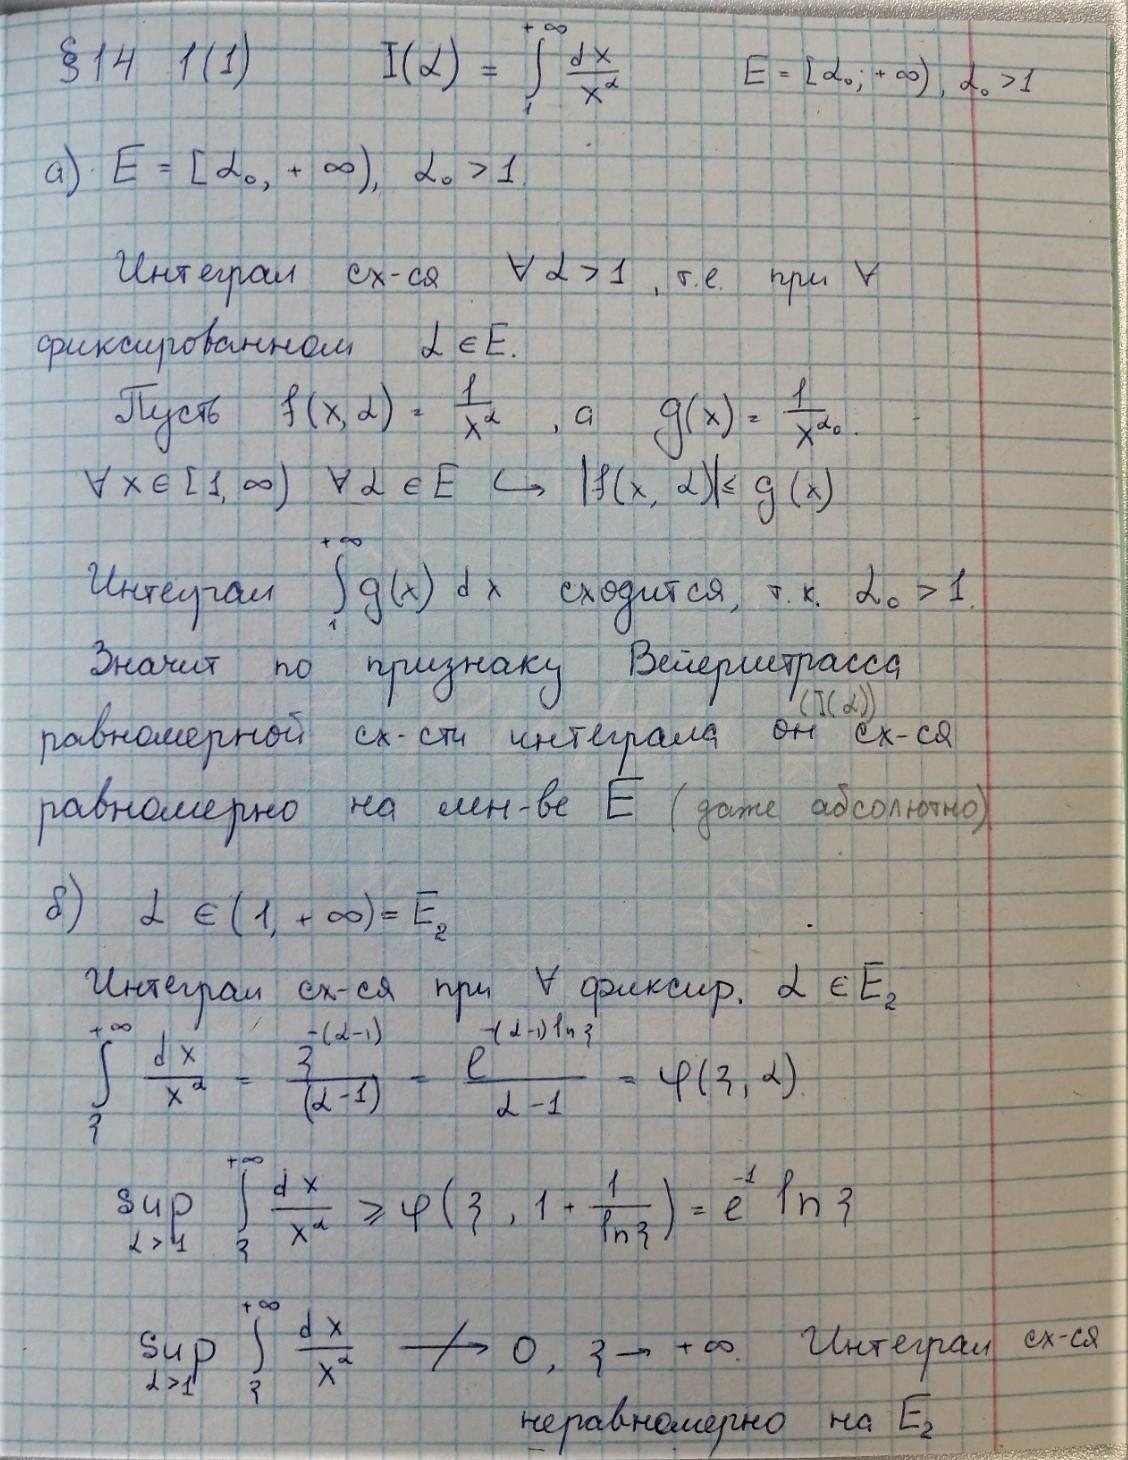 §14 1(1) I(α) = ∫₁^{+∞} dx/x^α E = [α₀; +∞), α₀ > 1
а) E = [α₀, +∞), α₀ > 1.
Интеграл сх-ся ∀ α > 1, т.е. при ∀
фиксированном α ∈ E.
Пусть f(x, α) = 1/x^α, а g(x) = 1/x^{α₀}.
∀ x ∈ [1, ∞) ∀ α ∈ E ↪ |f(x, α)| ≤ g(x)
Интеграл ∫₁^{+∞} g(x) dx сходится, т.к. α₀ > 1.
Значит по признаку Вейерштрасса
(I(α))
равномерной сх-сти интеграла он сх-ся
равномерно на мн-ве E (даже абсолютно)
б) α ∈ (1, +∞) = E₂
Интеграл сх-ся при ∀ фиксир. α ∈ E₂
∫_ξ^{+∞} dx/x^α = ξ^{-(α-1)}/(α-1) = e^{-(α-1) ln ξ}/(α-1) = φ(ξ, α).
sup_{α>1} ∫_ξ^{+∞} dx/x^α ≥ φ(ξ, 1 + 1/ln ξ) = e^{-1} ln ξ
sup_{α>1} ∫_ξ^{+∞} dx/x^α ↛ 0, ξ → +∞. Интеграл сх-ся
неравномерно на E₂